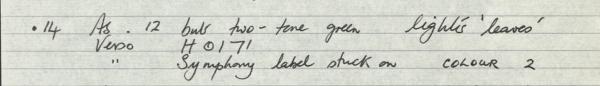 .14 As .12 but two-tone green lights 'leaves'
Verso H0171
" Symphony label stuck on COLOUR 2